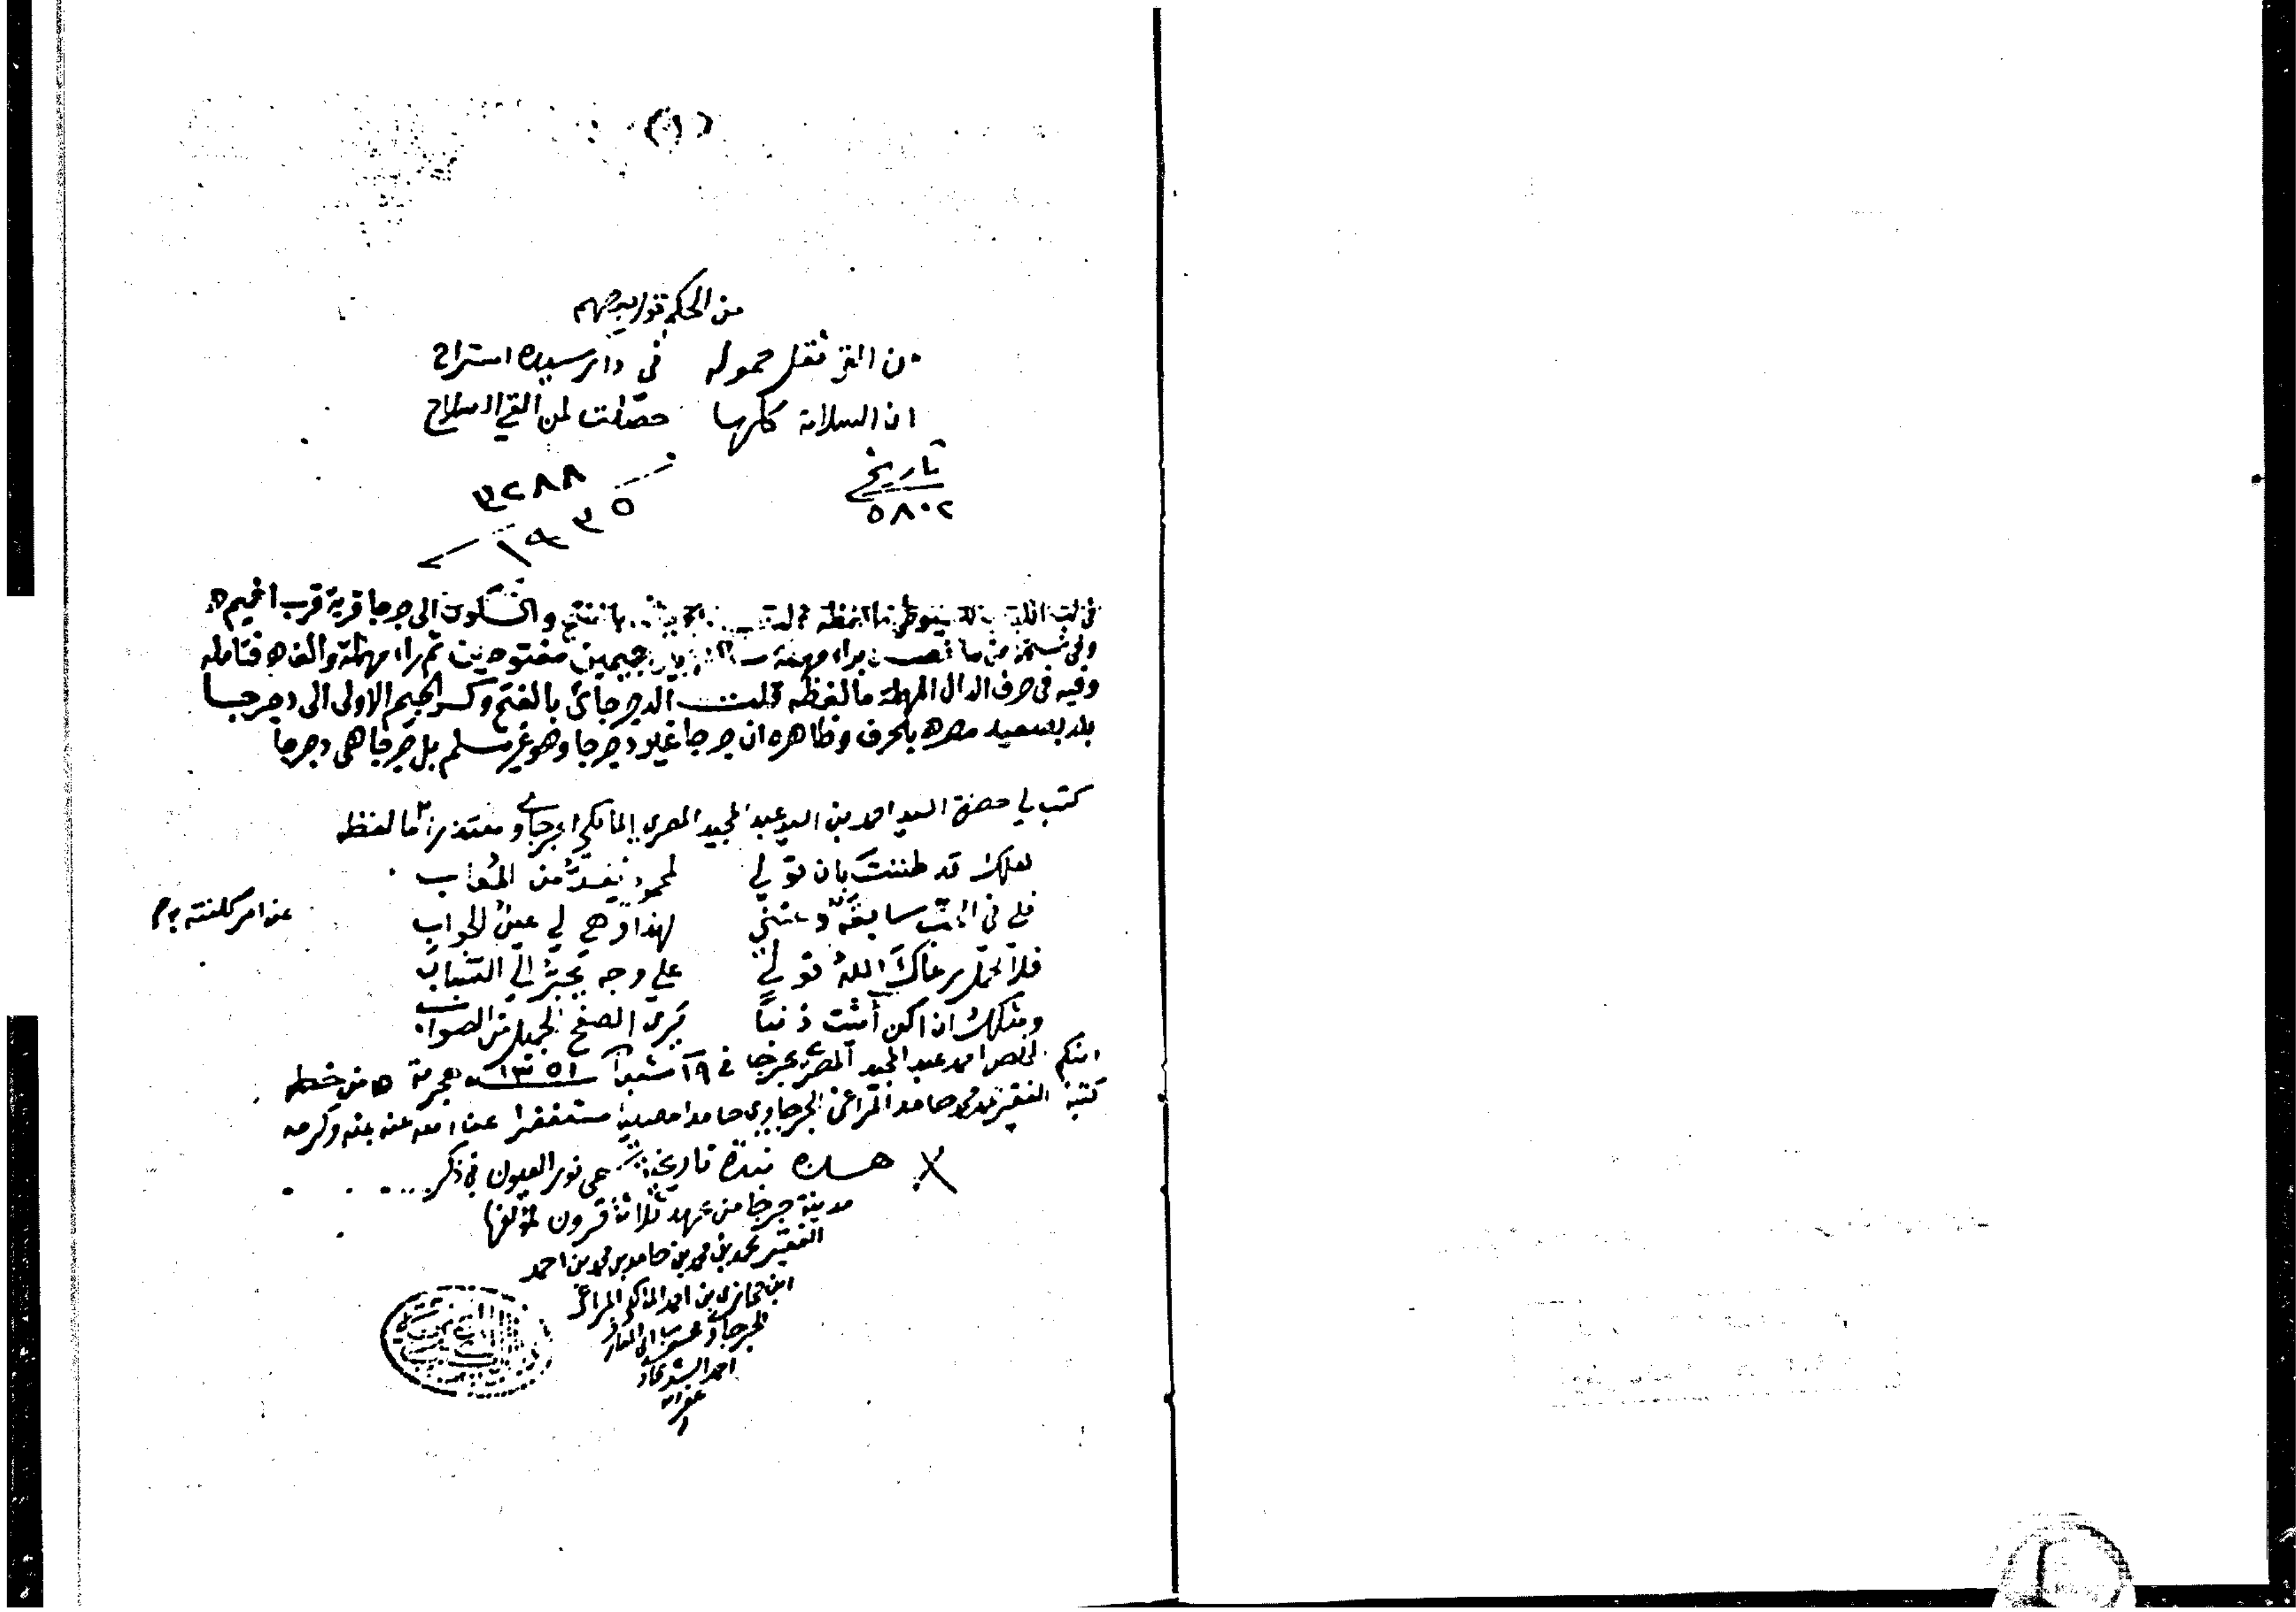 (١)
من الحكم قول بعضهم
من القى ثقل حموله في دار سيده استراح
ان السلامة كلها حصلت لمن القى السلاح
تاريخ
٥٨٠٢
٣٢٨٨
١٩٣٥
في لب اللباب للسيوطي ما لفظه قلت بالفتح والسكون الى جرجا قرية قرب اخميم ه
وفي نسخة منه ما نصه براء مهملة جيمين مفتوحين ثم راء مهملة والف ه فتامله
وفيه في حرف الدال المهملة ما لفظه قلت الدجرجائي بالفتح وكسر الجيم الاولى الى دجرجا
بلد بصعيد مصر ه بالحرف وظاهره ان جرجا غير دجرجا وهو غير مسلم بل جرجا هي دجرجا
كتب لي حضرة السيد احمد بن السيد عبد المجيد المصري المالكي الجرجاوي معتذرا ما لفظه
لعلك قد ظننت بان قولي لمحمود يفيد من المعاب
فلي في الحب سابقة دعتني لهذا وهي لي عين الجواب
عن امر كلفته به م
فلا تحمل رعاك الله قولي على وجه يجر الى التباب
ومثلك ان اكن أمثت ذنبا يرى الصفح الجميل من الصواب
ابنكم المخلص احمد عبد المجيد المصري بجرجا في ١٩ شعبان ١٣٥١ هجرية ه من خطه
كتبه الفقير محمد محمد حامد المراغي الجرجاوي حامدا مصليا مستغفرا عفا الله عنه بمنه وكرمه
هذه نبذة تاريخية تسمى نور العيون في ذكر ....
مدينة جرجا من عهد ثلاثة قرون لمؤلفها
الفقير محمد بن محمد بن حامد بن محمد بن احمد
ابن حجازي بن احمد المالكي المراغي
الجرجاوي
احمد الشرقاوي